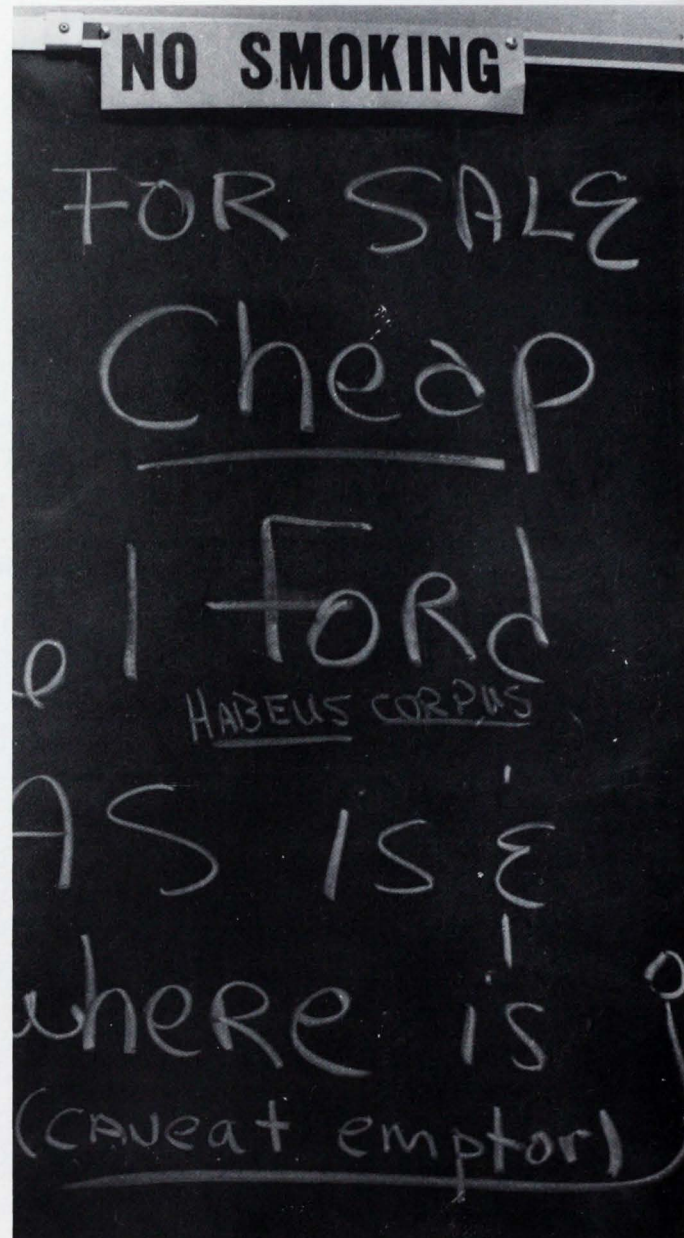 NO SMOKING
FOR SALE
Cheap
1 FORd
HABEUS CORPUS
AS IS &
wheRe is
(CAVeat emptor)